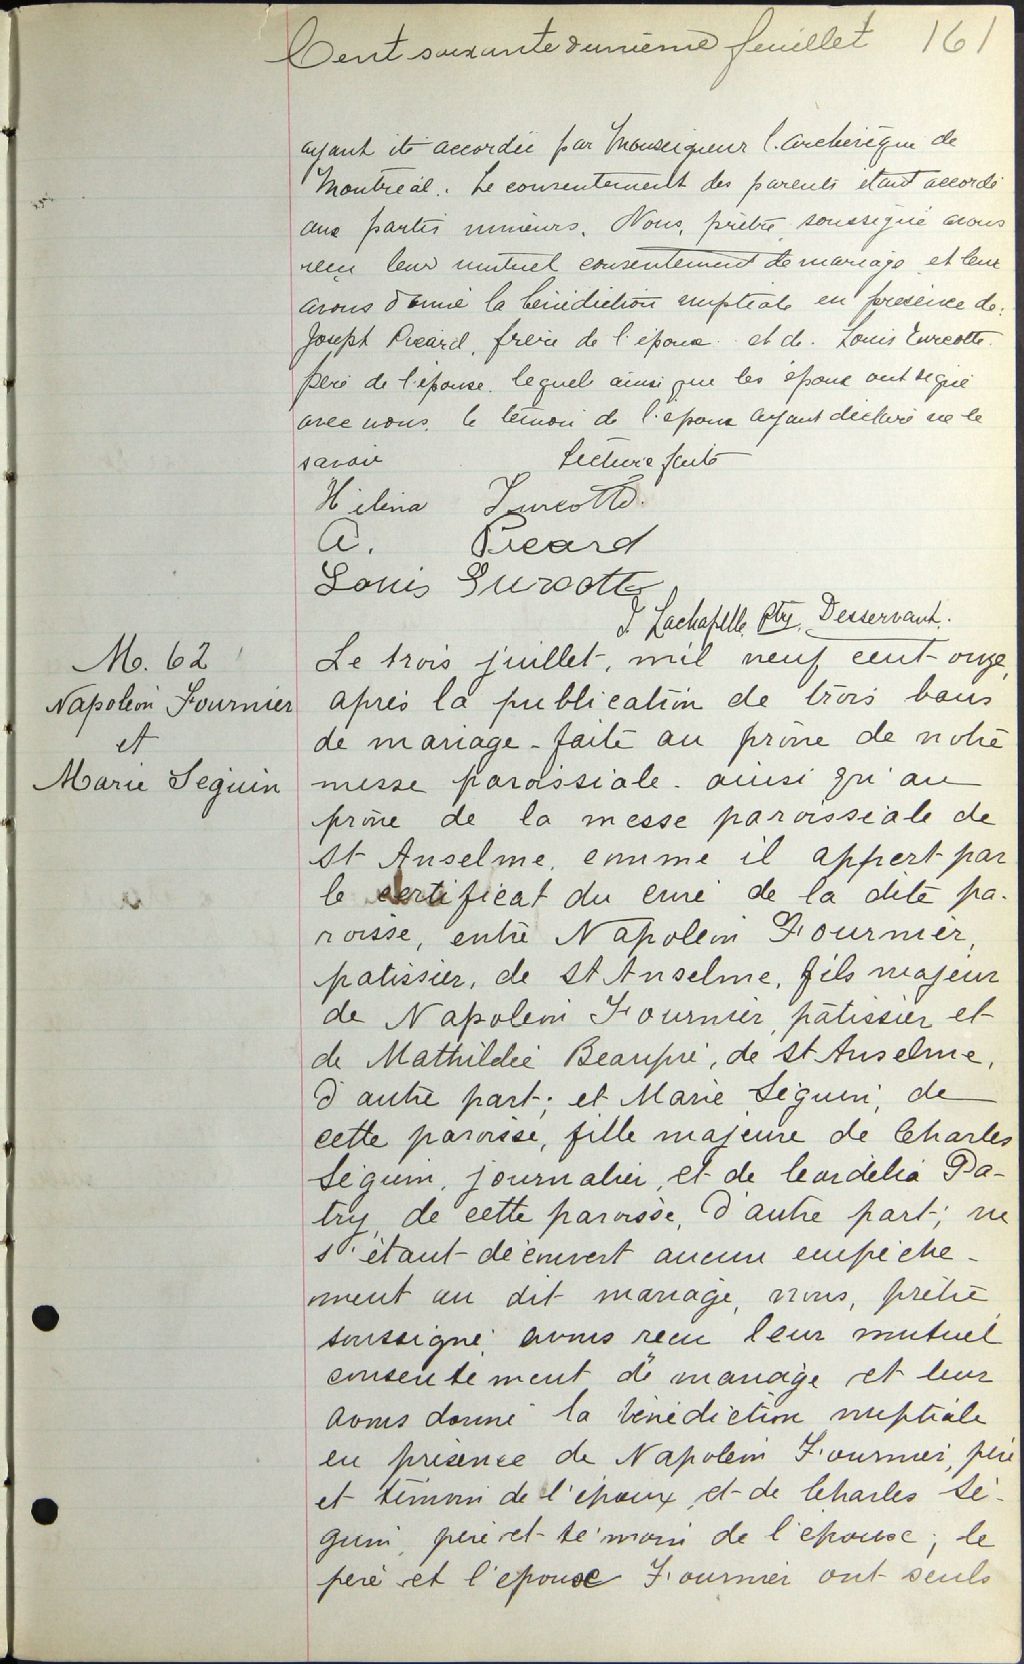 Cent soixante & unième feuillet 161
ayant été accordée par Monseigneur l'archevêque de
Montréal. Le consentement des parents étant accordé
aux partis mineurs. Nous, prêtre soussigné avons
reçu leur mutuel consentement de mariage et leur
avons donné la bénédiction nuptiale en présence de:
Joseph Picard, frère de l'époux et de Louis Turcotte
père de l'épouse lequel ainsi que les époux ont signé
avec nous. le témoin de l'époux ayant déclaré ne le
savoir Lecture faite
Hélèna Turcotte.
A. Picard
Louis Turcotte
J. Lachapelle Ptre, Desservant.
M. 62
Napoléon Fournier
et
Marie Séguin
Le trois juillet, mil neuf cent onze,
après la publication de trois bans
de mariage faite au prône de notre
messe paroissiale ainsi qu'au
prône de la messe paroissiale de
St Anselme, comme il appert par
le certificat du curé de la dite pa-
roisse, entre Napoléon Fournier,
patissier, de St Anselme, fils majeur
de Napoléon Fournier, pâtissier et
de Mathildée Beaupré, de St Anselme,
d'autre part; et Marie Séguin, de
cette paroisse, fille majeure de Charles
Séguin, journalier, et de Cordélia Pa-
try, de cette paroisse, d'autre part; ne
s'étant découvert aucun empêche-
ment au dit mariage, nous, prêtre
soussigné, avons reçu leur mutuel
consentement de mariage et leur
avons donné la bénédiction nuptiale
en présence de Napoléon Fournier, père
et témoin de l'époux, et de Charles Sé-
guin, père et témoin de l'épouse; le
père et l'épouse Fournier ont seuls